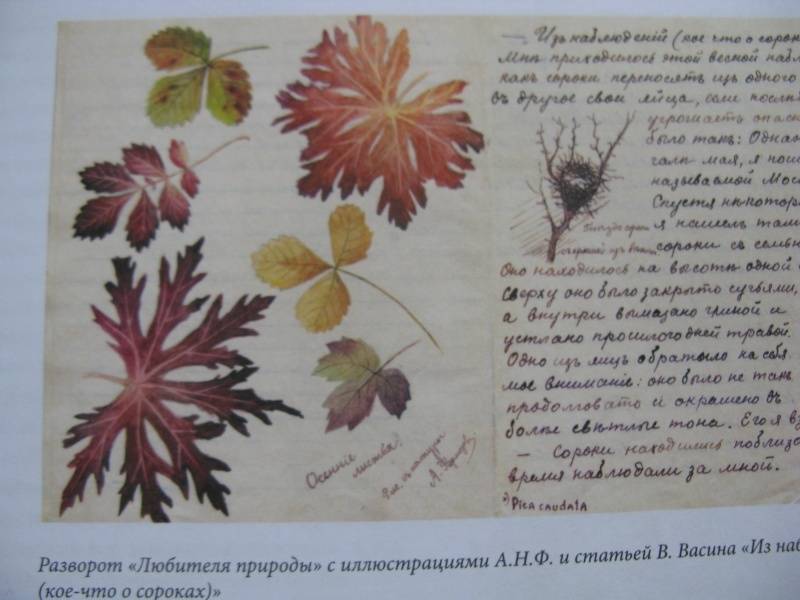 Осенніе
листья.
Рис. съ натуры
А.
— Изъ наблюденій (кое что о сорок
Мнѣ приходилось этой весной набл
какъ сороки переносятъ изъ одного
въ другое свои яйца, если послѣд
угрожаетъ опасн
было такъ: Однаж
чалѣ мая, я пош
называемой Мос
Спустя нѣкотор
я нашелъ там
сороки съ семью
Гнѣздо сороки
Оно находилось на высотѣ одной
Сверху оно было закрыто сучьями,
а внутри вымазано глиной и
устлано прошлогодней травой.
Одно изъ яицъ обратило на себя
мое вниманіе: оно было не такъ
продолговато и окрашено въ
болѣе свѣтлые тона. Его я вз
— Сороки находились поблизо
время наблюдали за мной.
*) Pica caudata
Разворот «Любителя природы» с иллюстрациями А.Н.Ф. и статьей В. Васина «Из наб
(кое-что о сороках)»